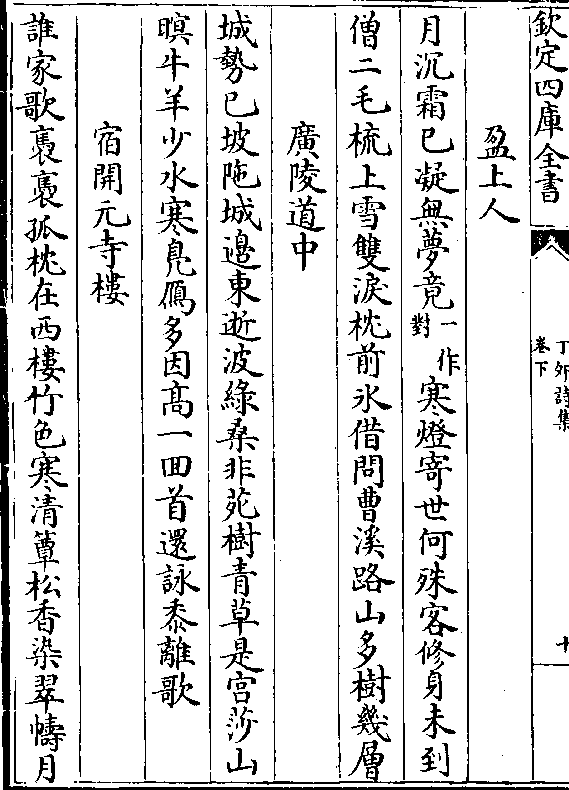 欽定四庫全書
丁卯詩集
卷下
十
盈上人
月沉霜已凝無夢竟一作對寒燈寄世何殊客修身未到
僧二毛梳上雪雙淚枕前氷借問曹溪路山多樹幾層
廣陵道中
城勢已坡陁城邊東逝波綠桑非苑樹青草是宮莎山
暝牛羊少水寒鳬鴈多因髙一囬首還詠黍離歌
宿開元寺樓
誰家歌褭褭孤枕在西樓竹色寒清簟松香染翠幬月